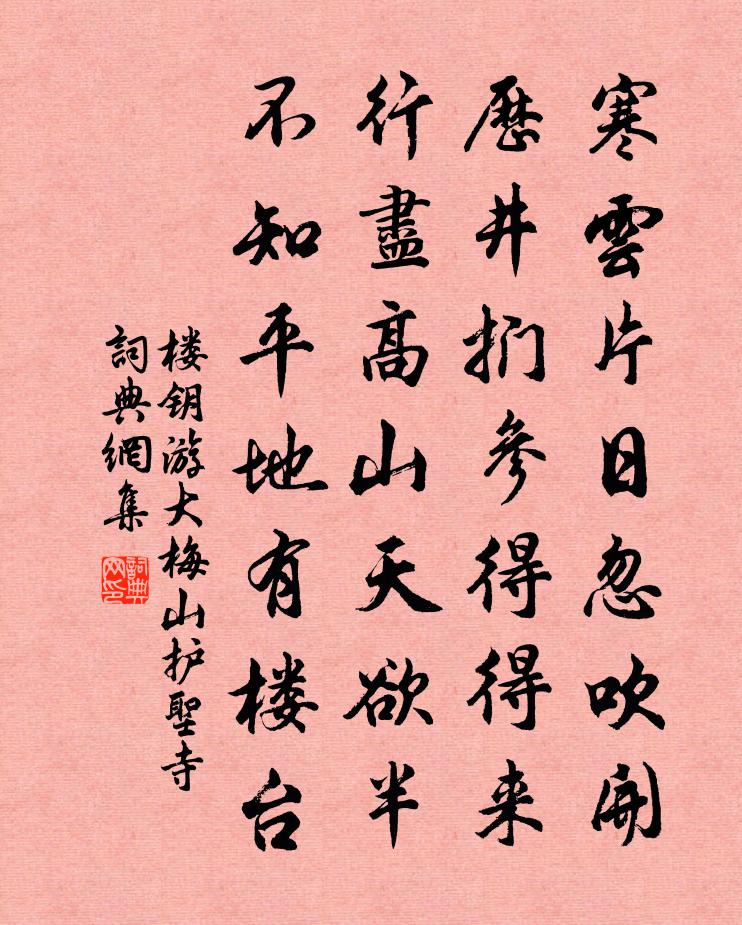 寒雲片日忽吹開
歷井捫參得得来
行盡高山天欲半
不知平地有楼台
楼钥游大梅山护聖寺
詞典網集
詞典網印